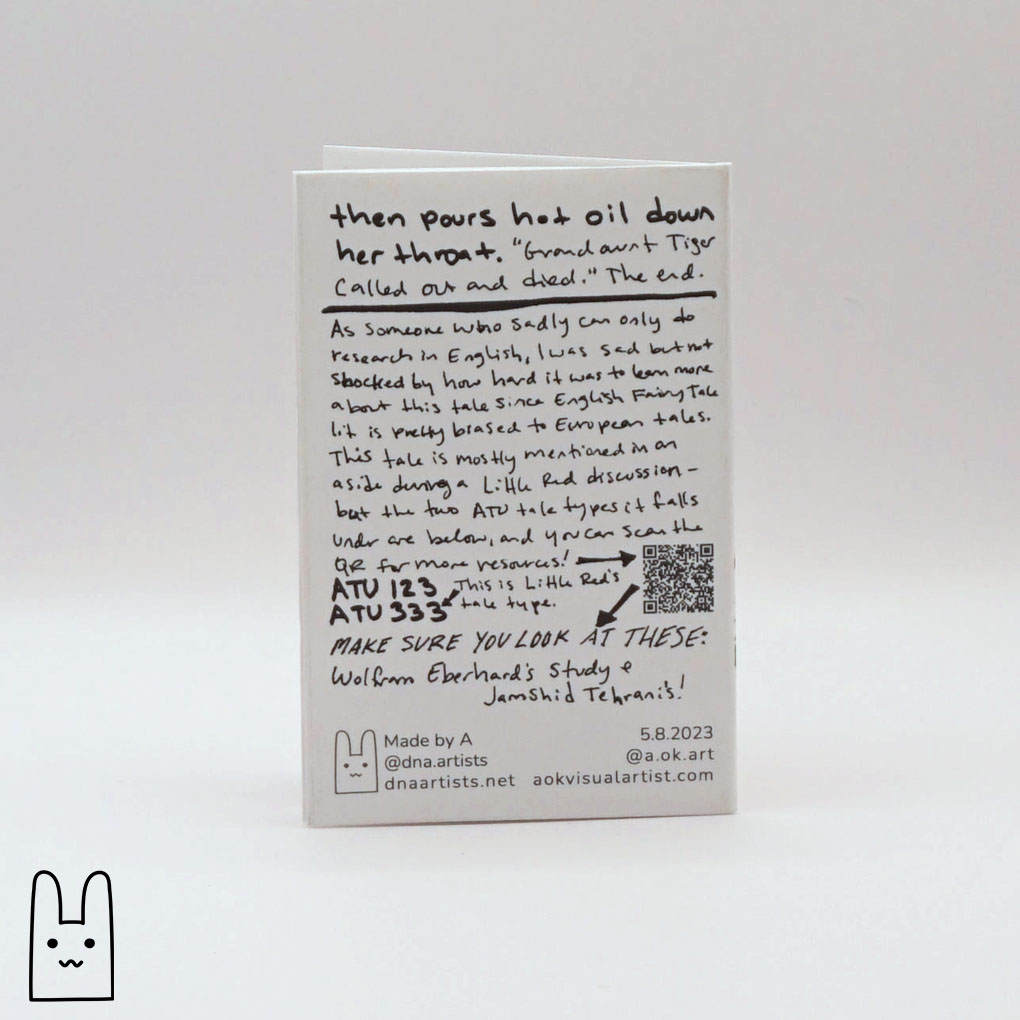 then pours hot oil down
her throat. "Grandaunt Tiger
Called out and died." The end.
As someone who sadly can only do
research in English, I was sad but not
shocked by how hard it was to learn more
about this tale since English Fairy Tale
lit is pretty biased to European tales.
This tale is mostly mentioned in an
aside during a Little Red discussion -
but the two ATU tale types it falls
undr are below, and you can scan the
QR for more resources!
ATU 123 This is Little Red's
ATU 333 tale type.
MAKE SURE YOU LOOK AT THESE:
Wolfram Eberhard's Study &
Jamshid Tehrani's!
Made by A 5.8.2023
@dna.artists @a.ok.art
dnaartists.net aokvisualartist.com